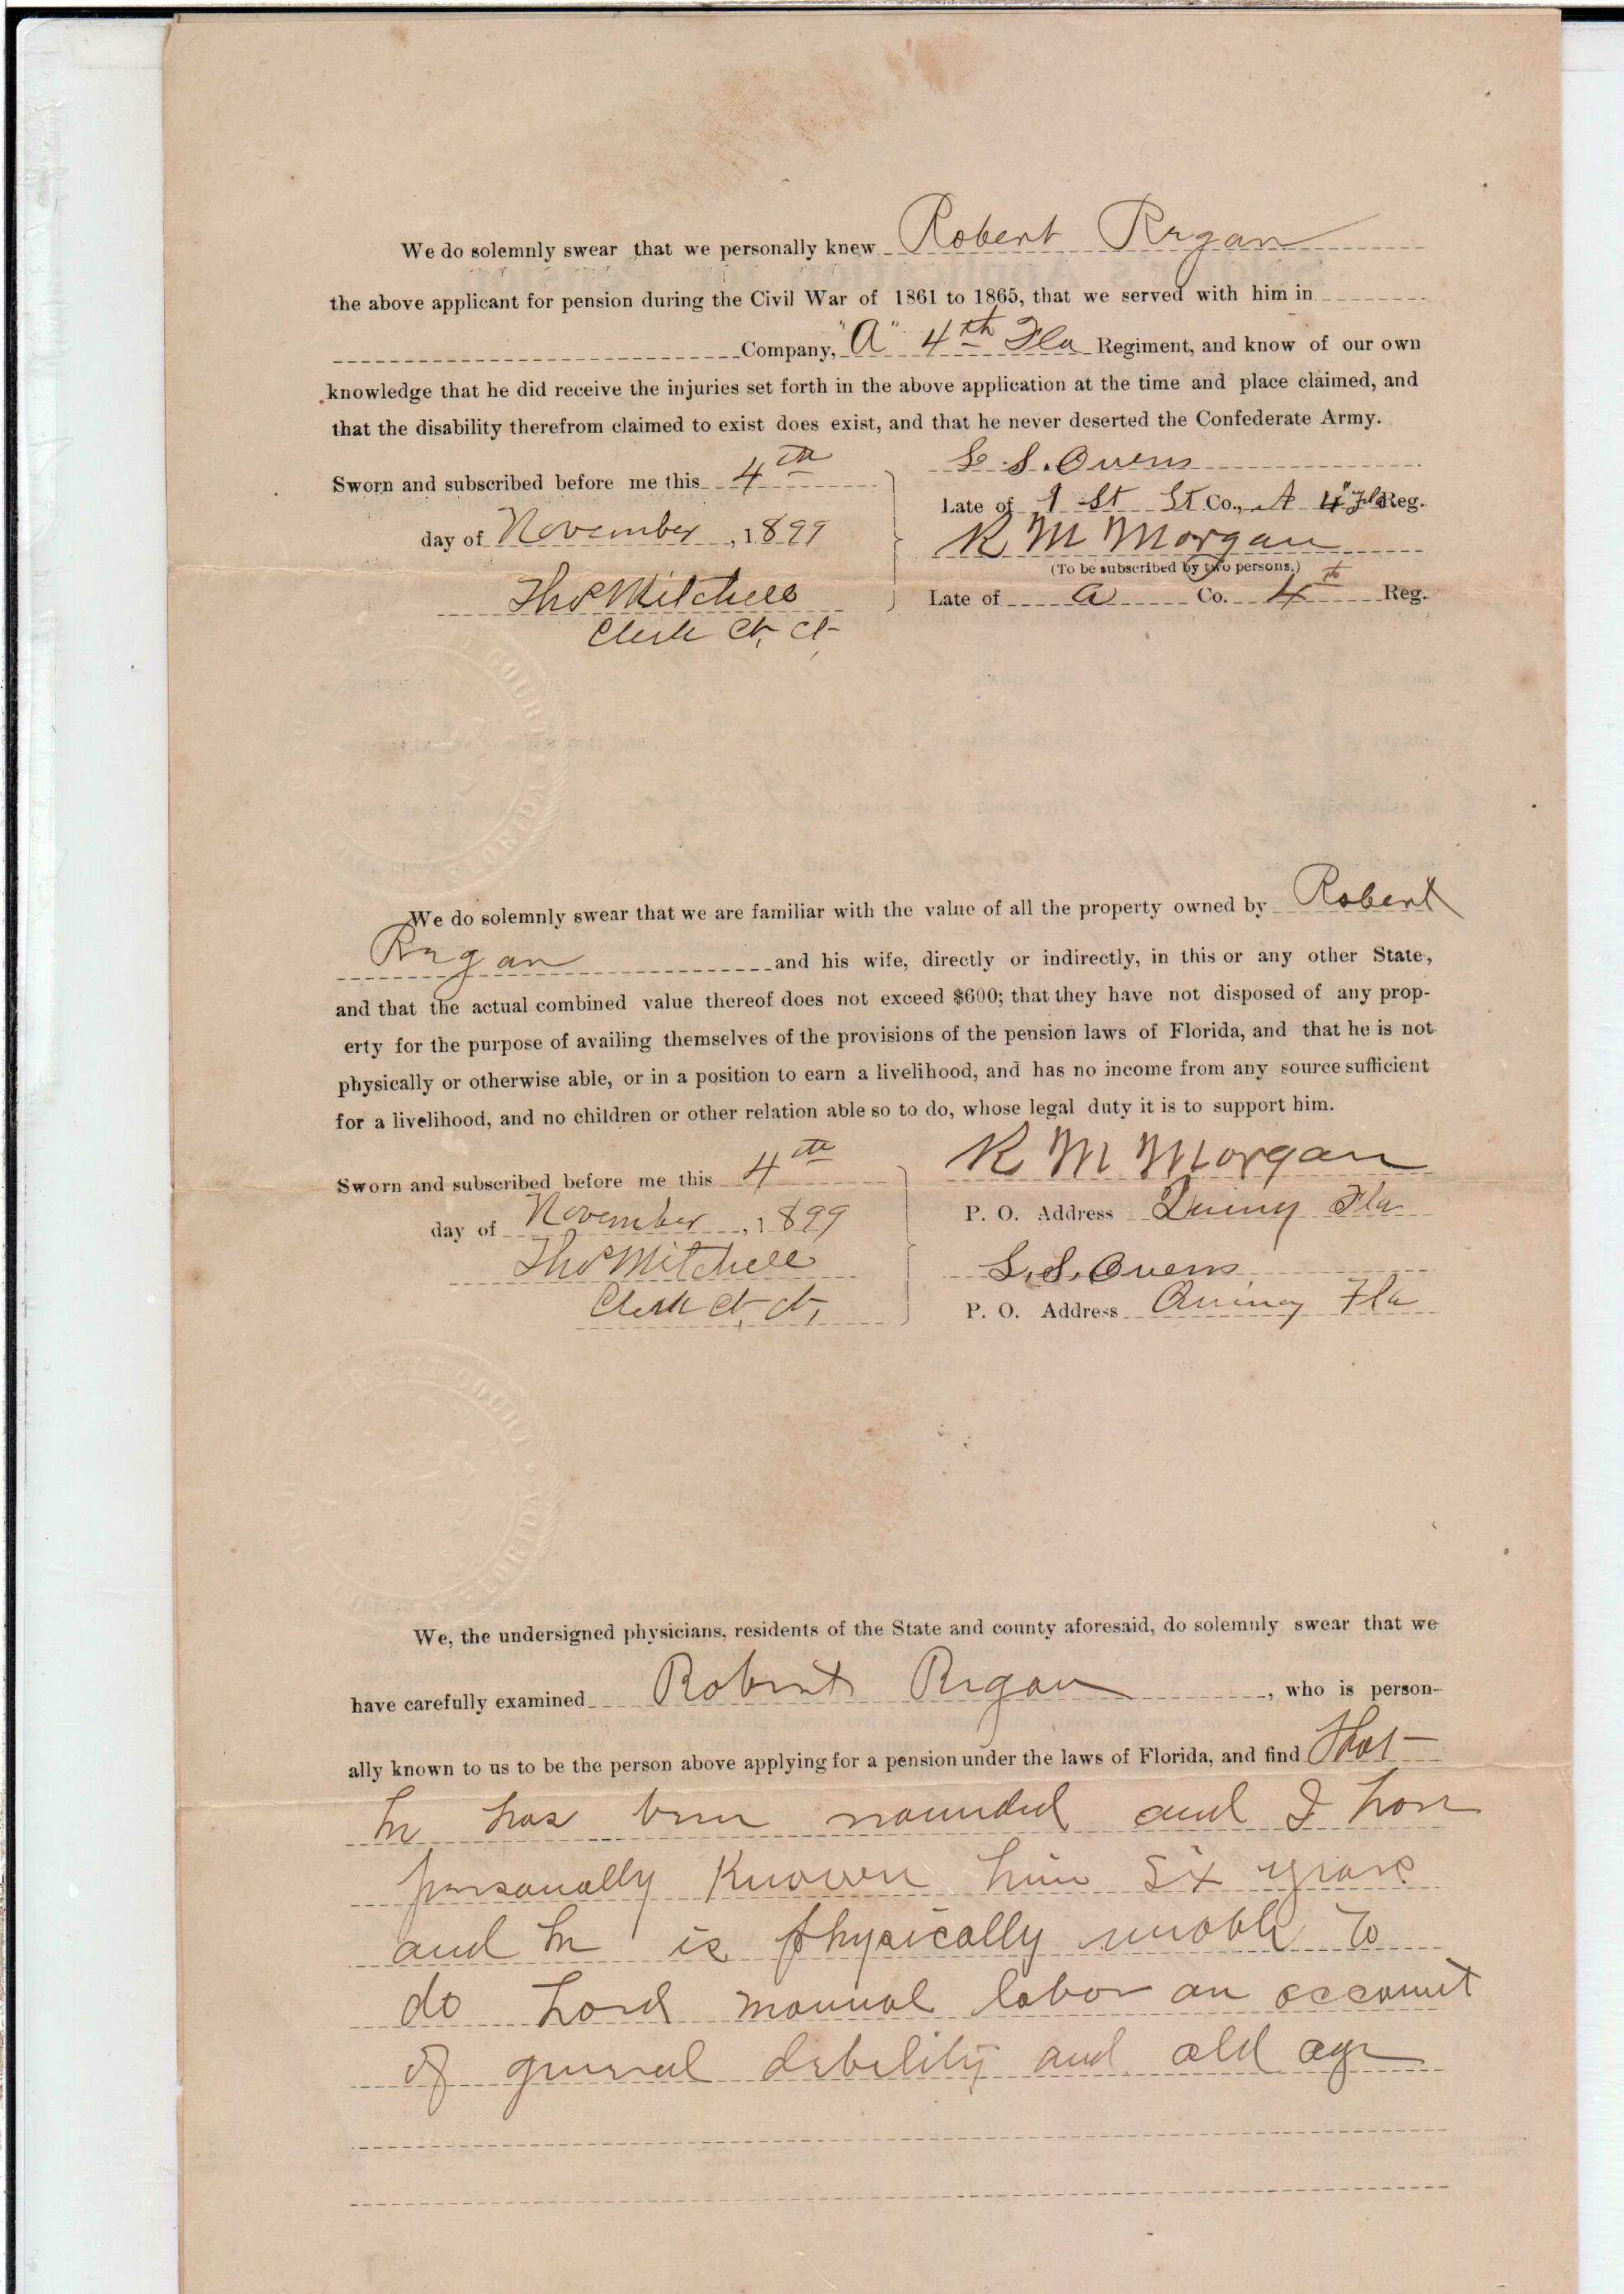 We do solemnly swear that we personally knew Robert Regan
the above applicant for pension during the Civil War of 1861 to 1865, that we served with him in
Company, "A" 4th Fla Regiment, and know of our own
knowledge that he did receive the injuries set forth in the above application at the time and place claimed, and
that the disability therefrom claimed to exist does exist, and that he never deserted the Confederate Army.
S. S. Owens
Sworn and subscribed before me this 4th
Late of 1 St Co., A 4" Fla Reg.
day of November, 1899
R M Morgan
(To be subscribed by two persons.)
Thos Mitchell
Late of A Co. 4th Reg.
Clerk Ct. Ct.
We do solemnly swear that we are familiar with the value of all the property owned by Robert
Regan and his wife, directly or indirectly, in this or any other State,
and that the actual combined value thereof does not exceed $600; that they have not disposed of any prop-
erty for the purpose of availing themselves of the provisions of the pension laws of Florida, and that he is not
physically or otherwise able, or in a position to earn a livelihood, and has no income from any source sufficient
for a livelihood, and no children or other relation able so to do, whose legal duty it is to support him.
R M Morgan
Sworn and subscribed before me this 4th
P. O. Address Quincy Fla
day of November, 1899
Thos Mitchell
S. S. Owens
Clerk Ct. Ct.
P. O. Address Quincy Fla
We, the undersigned physicians, residents of the State and county aforesaid, do solemnly swear that we
have carefully examined Robert Regan, who is person-
ally known to us to be the person above applying for a pension under the laws of Florida, and find that
he has been wounded and I have
personally Known him Six years
and he is physically unable to
do hard manual labor on account
of general debility and old age